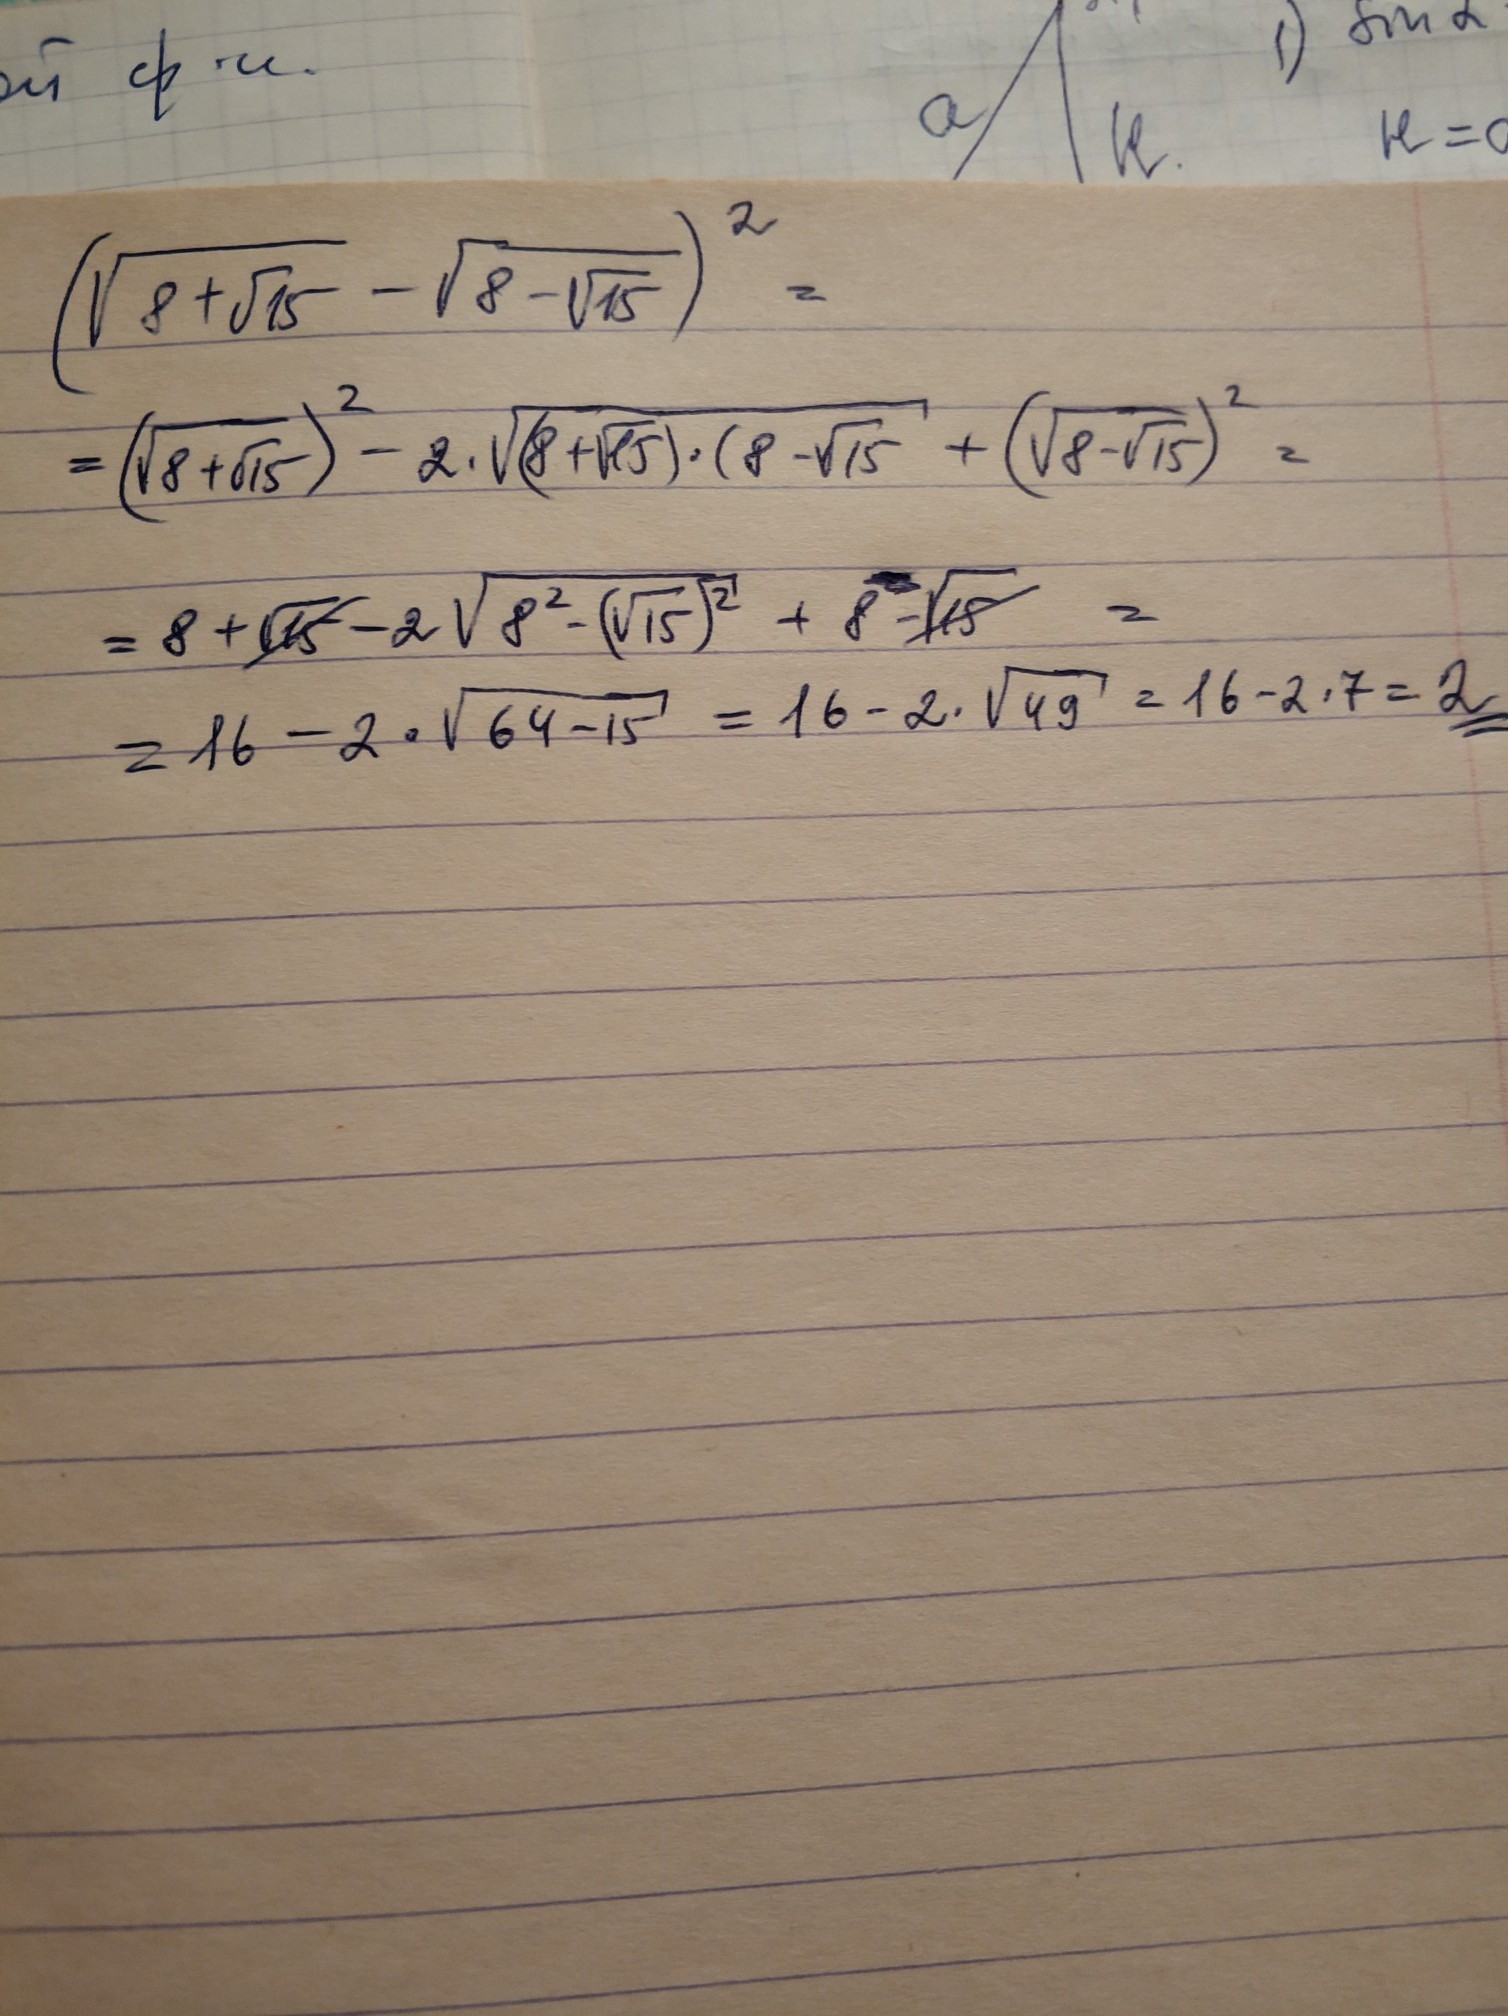 ой ф-и.
1) sin α
a h. h = a
(√(8+√15) - √(8-√15))² =
= (√(8+√15))² - 2·√((8+√15)·(8-√15) + (√(8-√15))² =
= 8 + √15 - 2√(8² - (√15)²) + 8 - √15 =
= 16 - 2·√(64-15) = 16 - 2·√49 = 16 - 2·7 = 2